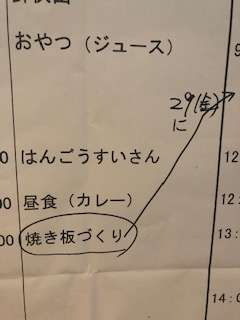 おやつ（ジュース）
9
29(金)
に
0 はんごうすいさん 12
00 昼食（カレー） 12:
:00 焼き板づくり 13:
14:0